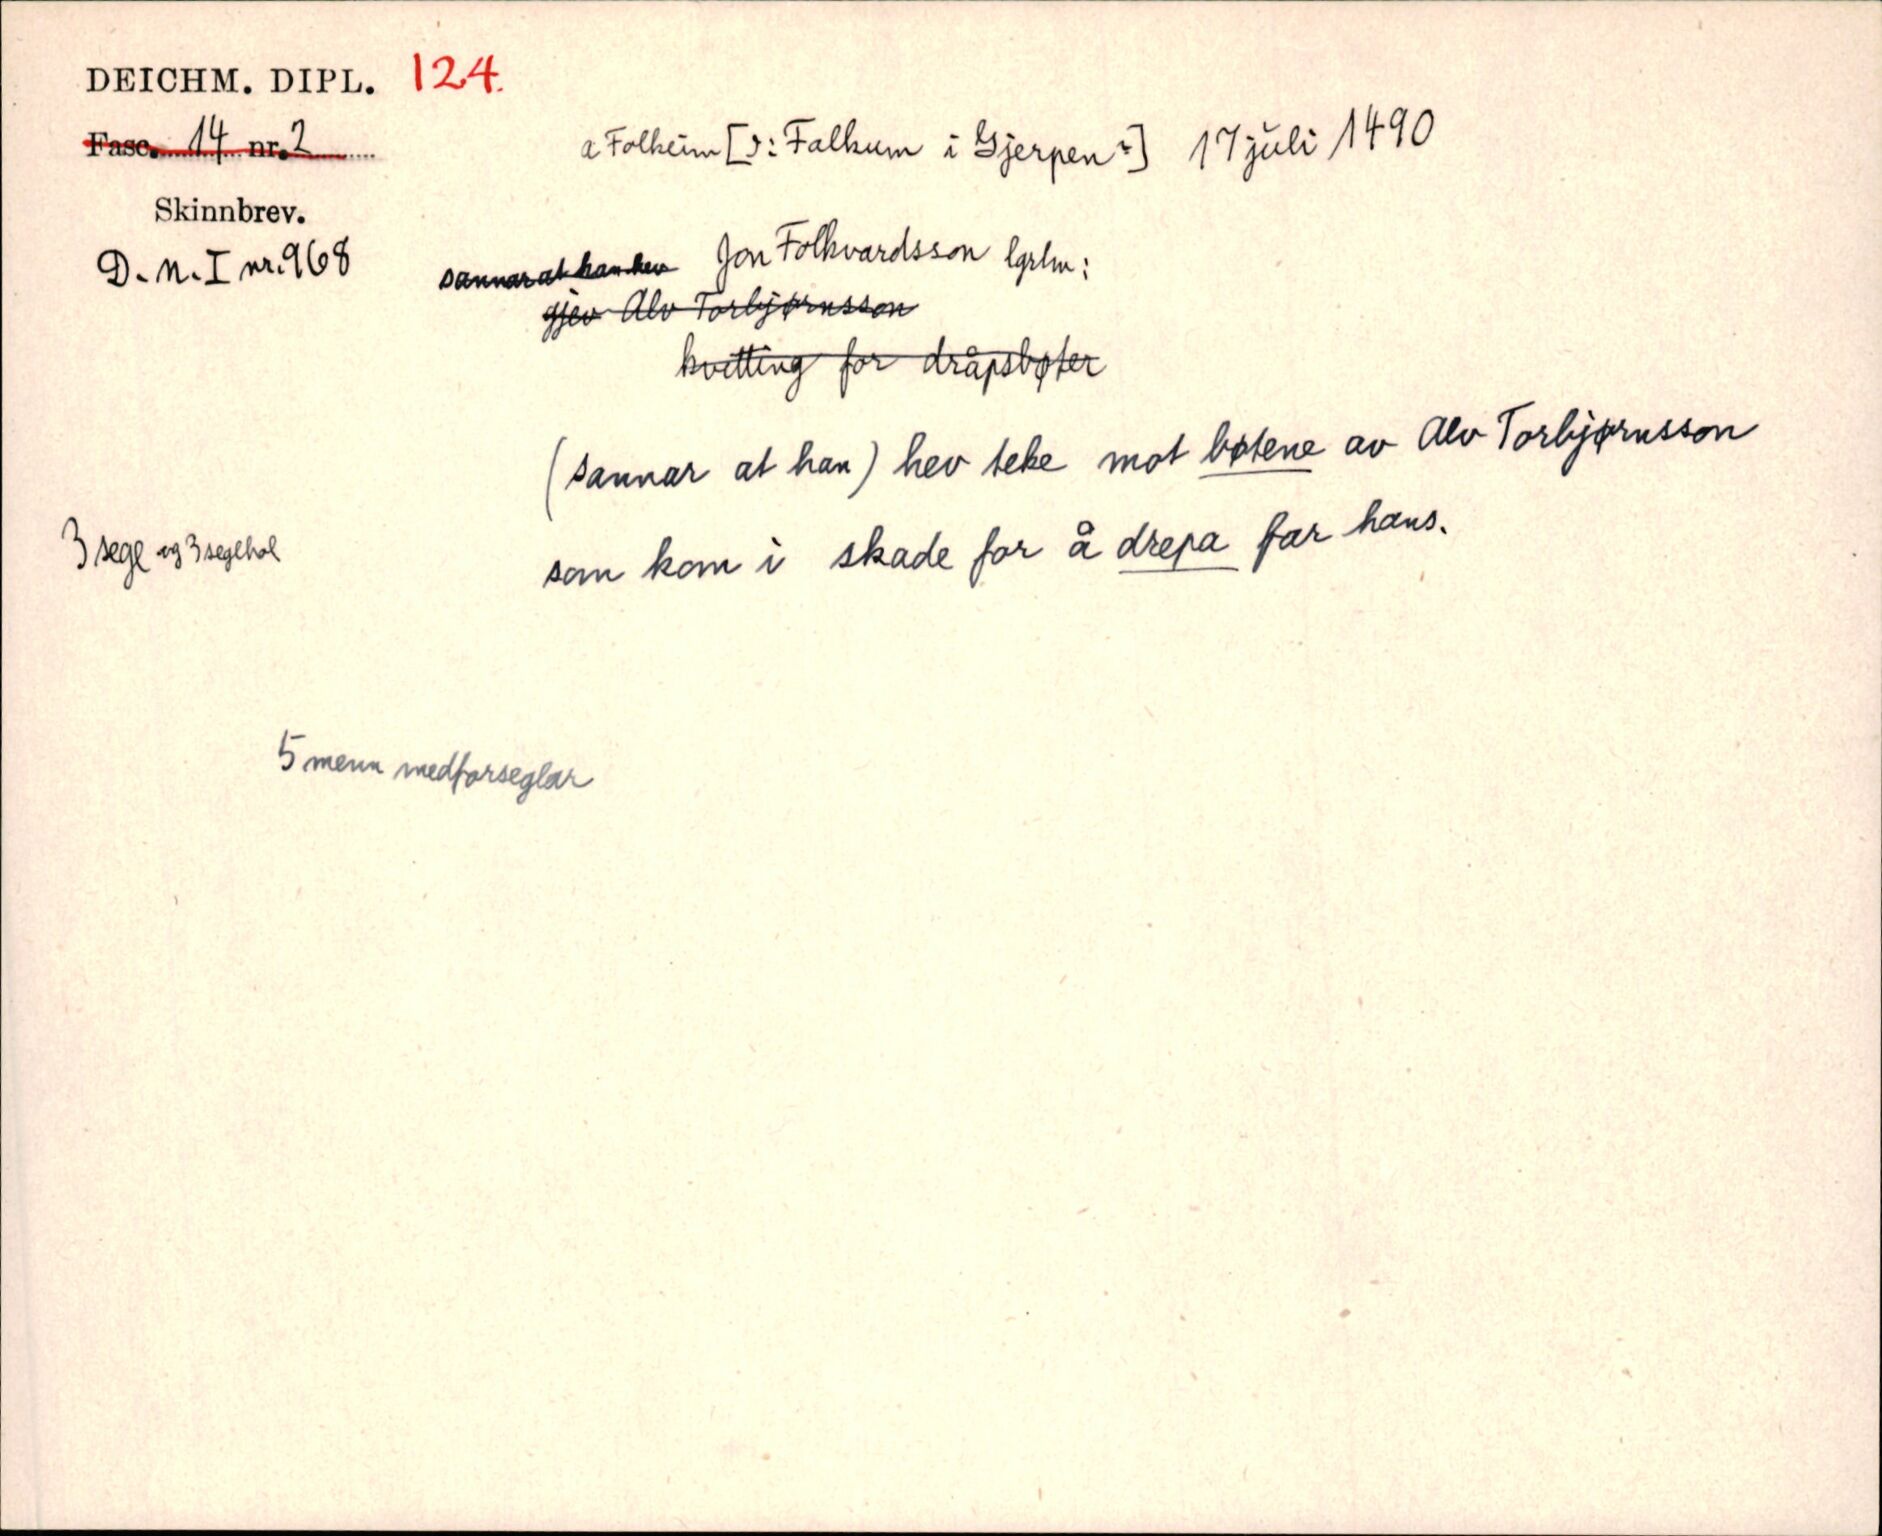 DEICHM. DIPL. 124.
Fasc. 14 nr. 2
a Folkeim [ɔ: Falkum i Gjerpen?] 17 juli 1490
Skinnbrev.
D. n. I nr. 968
sannar at han hev Jon Folkvardsson lgrlm:
gjev Alv Torbjørnsson
kvitting for dråpsbøter
(sannar at han) hev teke mot bøtene av Alv Torbjørnsson
3 segl og 3 seglhol
som kom i skade for å drepa far hans.
5 menn medforseglar